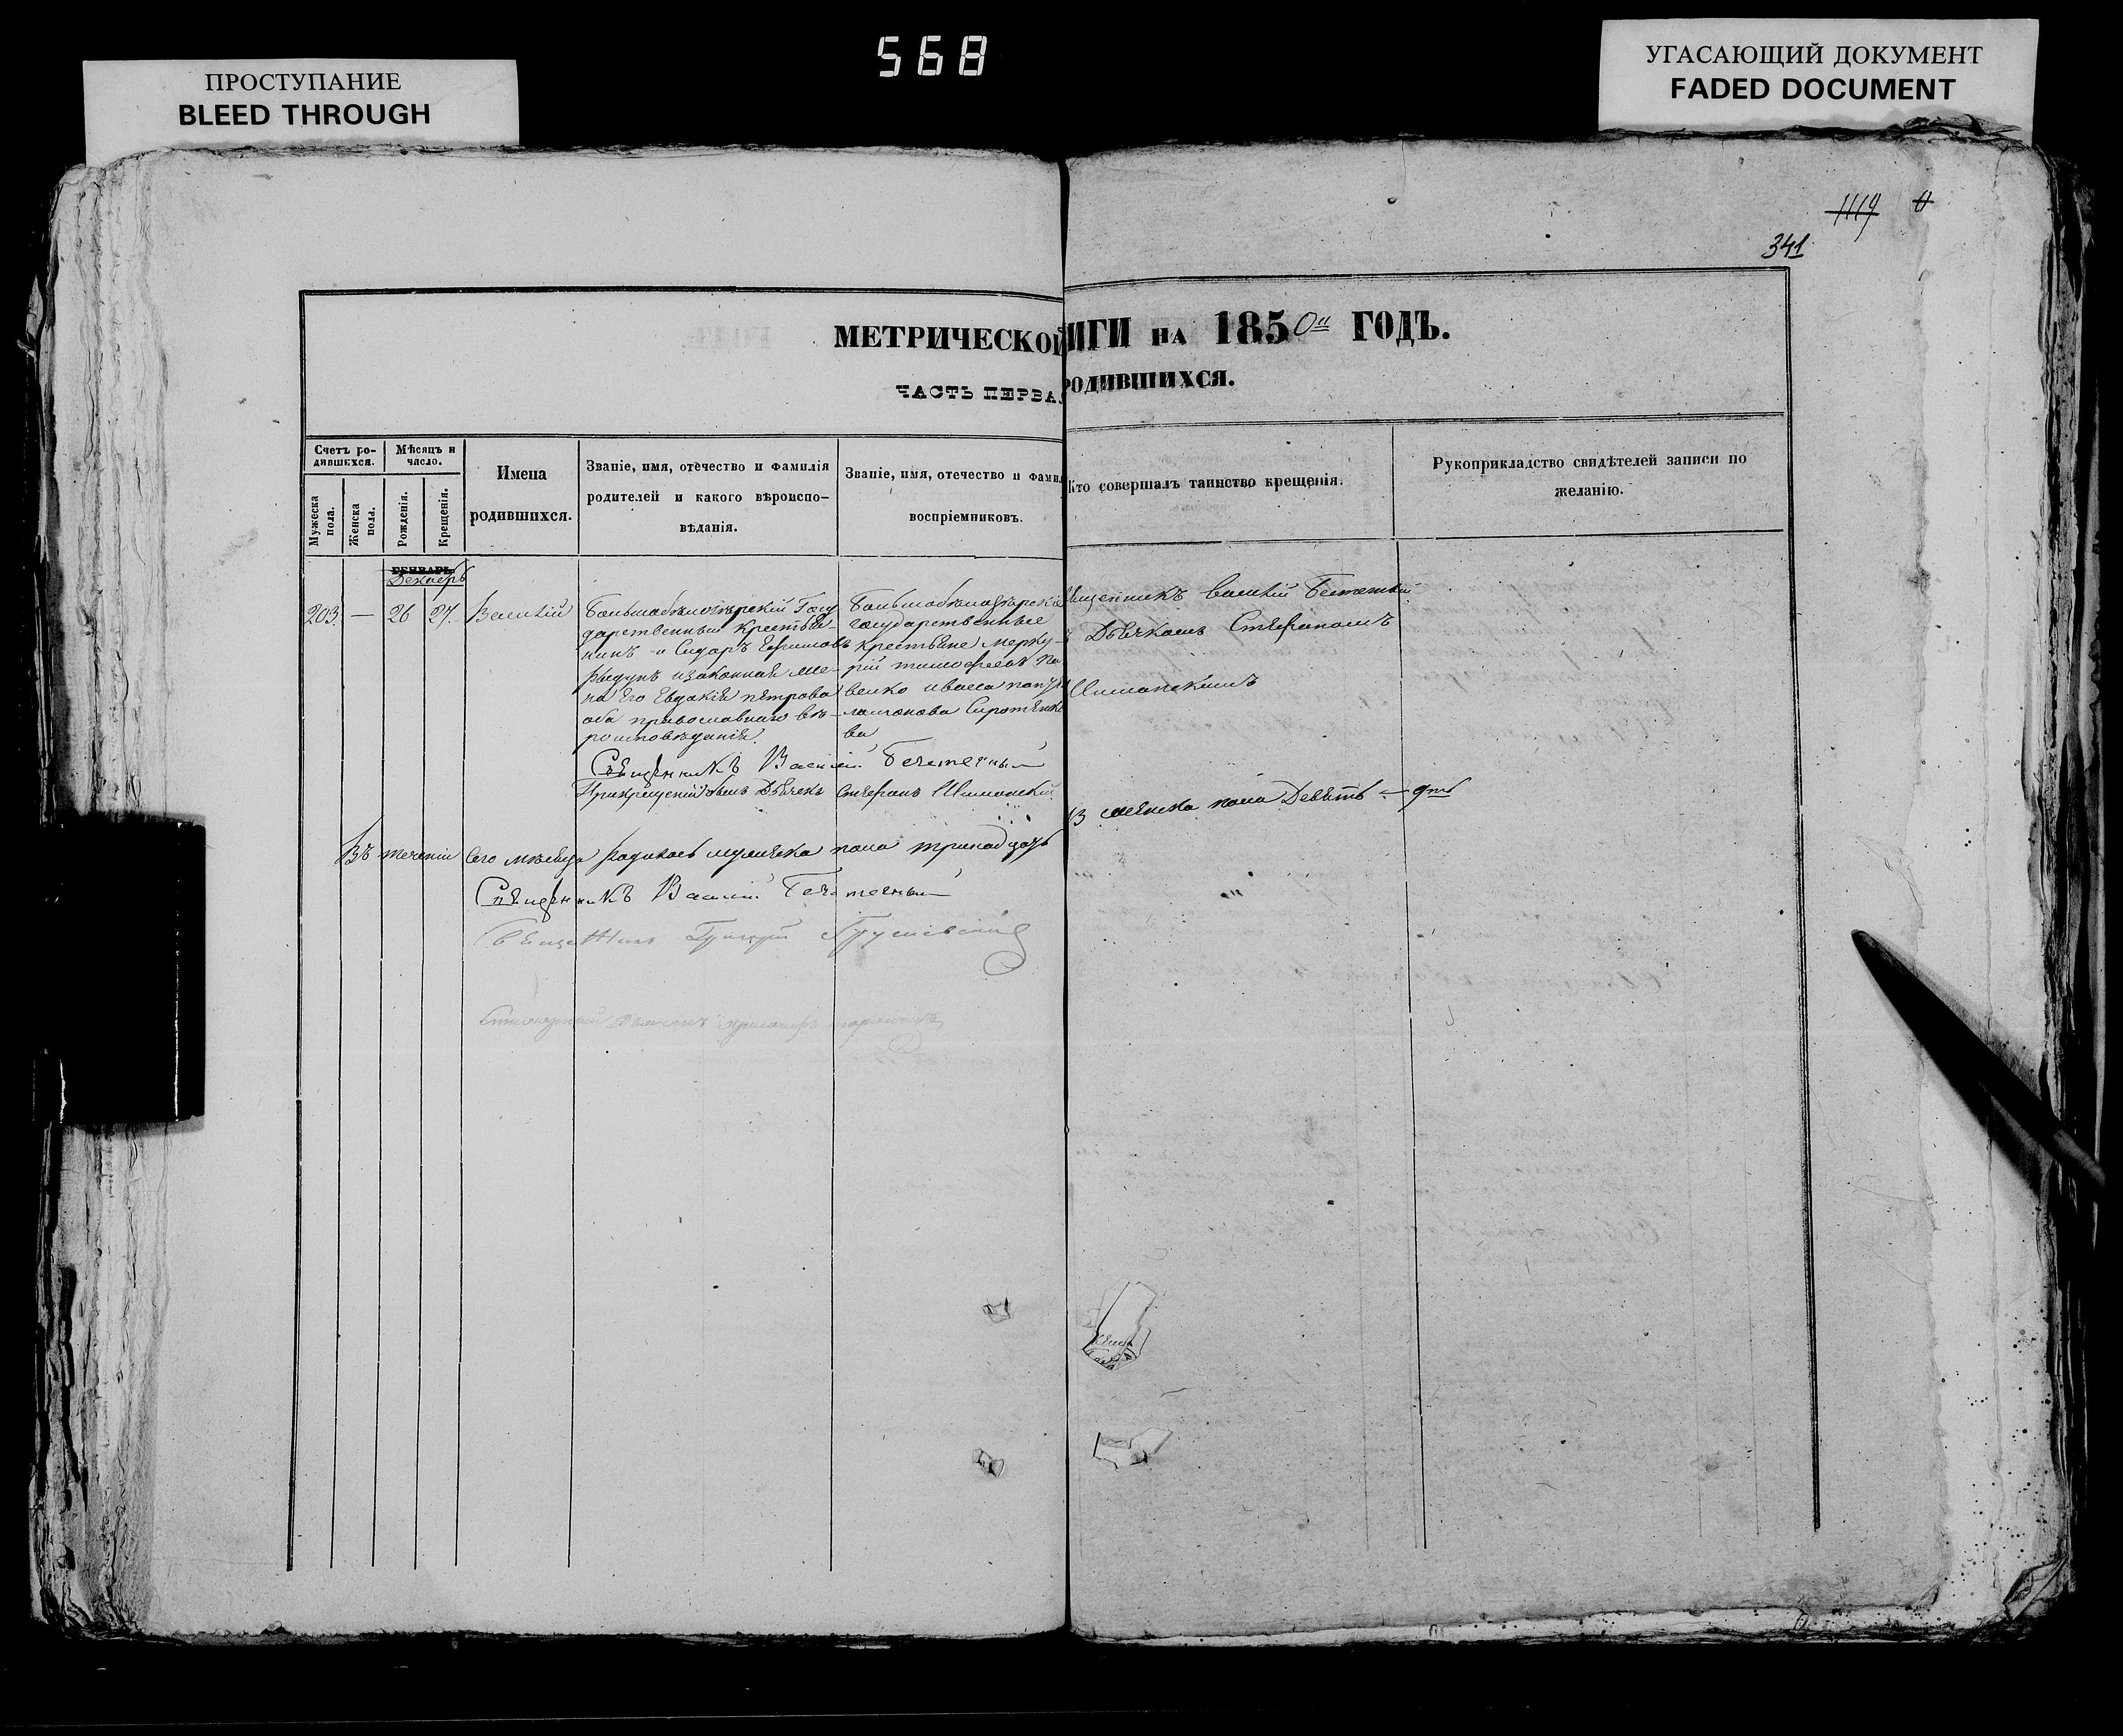 568
ПРОСТУПАНИЕ
BLEED THROUGH
УГАСАЮЩИЙ ДОКУМЕНТ
FADED DOCUMENT
1119
341
МЕТРИЧЕСКОЙ
ИГИ НА 1850 ГОДЪ.
ЧАСТЬ ПЕРВА
РОДИВШИХСЯ.
Счетъ ро-
дившихся.
Мужеска пола.
Женска пола.
Мѣсяцъ и
число.
Рожденія.
Крещенія.
Имена
родившихся.
Званіе, имя, отечество и фамилія
родителей и какого вѣроиспо-
вѣданія.
Званіе, имя, отечество и фамил
воспріемниковъ.
Кто совершалъ таинство крещенія.
Рукоприкладство свидѣтелей записи по
желанію.
ГЕНВАРЬ
Декабрь
203. — 26 27. Василій
Большобѣлозѣрскій Госу
дарственный Крестья-
нинъ Сидоръ Ефимовъ
изаконная же-
на Его Евдокія петрова
оба православнаго вѣ-
роисповѣданія.
Большобѣлозѣрскіе
государственные
крестьяне Мерку-
рій тимофеевъ Па
венко
ва
щенникъ Василій
Дьячкомъ Стефаномъ
Шиманскимъ
Священникъ Василій
Прикрещеніи былъ Дьячекъ Стефанъ Шиманскій
Въ теченіи Сего мѣсяца родилось мужеска пола тринадцать
женска пола Девять
Священникъ Василій
Священникъ Григорій